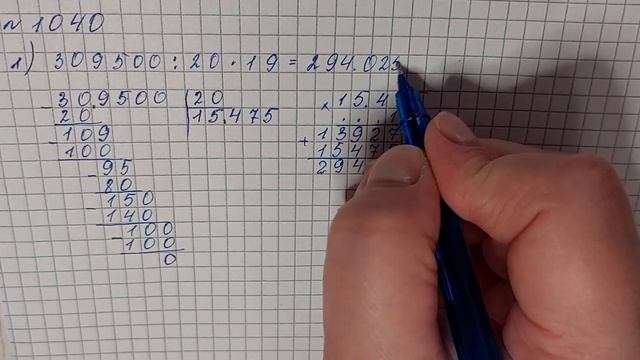 № 1040
1) 309500 : 20 · 19 = 294.025
30.9500 20
20 15.475
109
100
95
80
150
140
100
100
0
× 15.4
+ 13927
1547
294